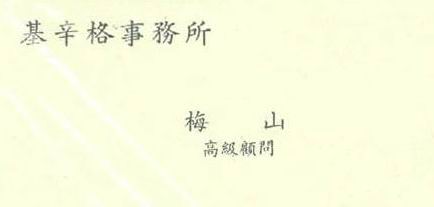 基辛格事務所
梅 山
高級顧問